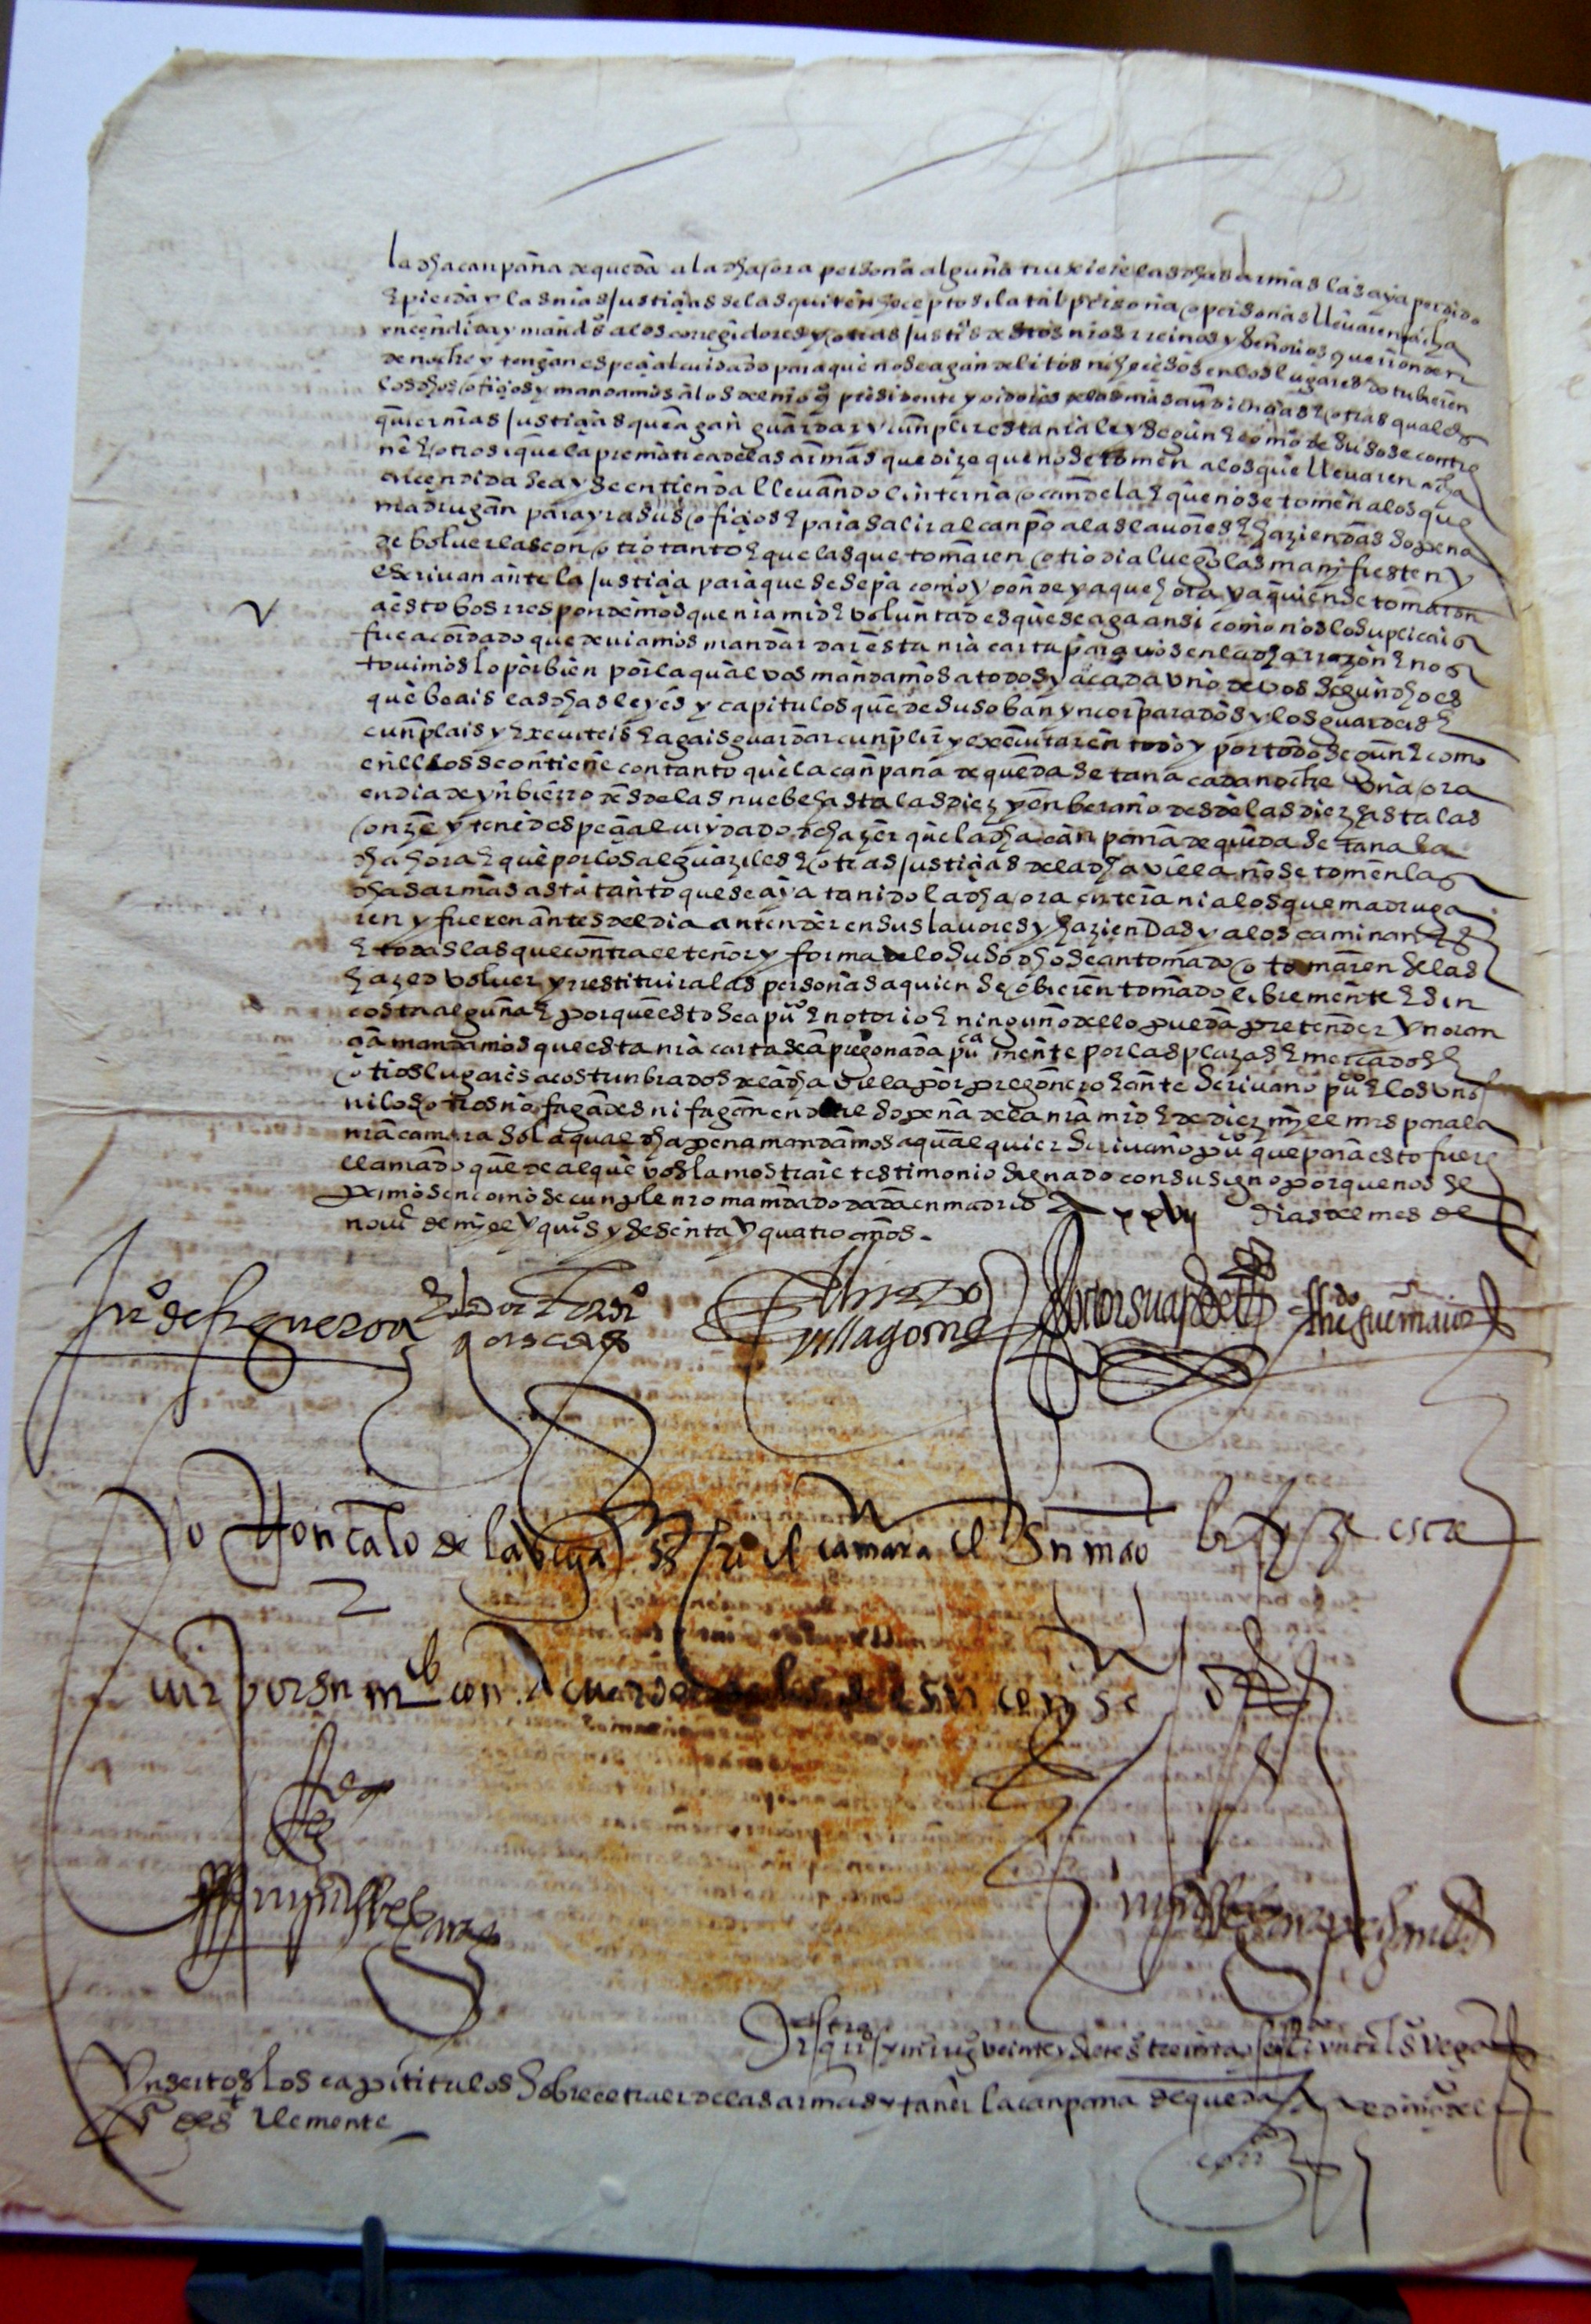 la dha canpana de queda a la dha ora persona alguna truxiere las dhas armas las aya perdido
E pierda y las nras justiçias se las quiten heceptos si la tal persona o personas llevaren acha
encendida y mandº a los corregidores y otras justiªs destos nros rreinos y señorios que rronden
de noche y tengan espeçial cuidado para que no se agan delitos ni heçesos en los lugares do tubieren
los dhos ofiçios y mandamos a los del nro qº presidente y oidores de las nras audiençias E otras quales
quier nras justiçias que agan guardar y cunplir esta nra ley segun E como de suso se contie
ne E otrosi que la prematica de las armas que dize que no se tomen a los que llevaren acha
encendida sea y se entienda llevando linterna o candela E que no se tomen a los que
madrugan para yr a sus ofiçios E para salir al canpo a las lavores E haziendas so pena
de bolverlas con otro tanto E que las que tomaren otro dia luego las manifiesten y
escrivan ante la justiçia para que se sepa como y donde y a que hora y a quien se tomaron
a esto bos rrespondemos que nra mrd E voluntad es que se aga ansi como nos lo suplicais
fue acordado que deviamos mandar dar esta nra carta para vos en la dha rrazon E nos
tovimos lo por bien por la qual vos mandamos a todos y a cada uno de vos segun dho es
que beais las dhas leyes y capitulos que de suso ban yncorparados y los guardeis E
cunplais y Executeis E agais guardar cunplir y executar en todo y por todo segun E como
en ellos se contiene con tanto que la canpana de queda se tana cada noche una ora
en dia de ynbierno desde las nuebe hasta las diez y en berano desde las diez hasta las
onze y tened espeçial cuydado de hazer que la dha canpana de queda se tana la
dha hora E que por los alguaziles E otras justiçias de la dha villa no se tomen las
dhas armas asta tanto que se aya tanido la dha ora entera ni a los que madruga
ren y fueren antes del dia a entender en sus lavores y haziendas y a los caminantes
E todas las que contra el tenor y forma de lo susodho se an tomado o tomaren se las
hazed volver y rrestituir a las personas a quien se obieren tomado libremente E sin
costa alguna E porque esto sea puº E notorio E ninguno dello pueda pretender ynoran
çia mandamos que esta nra carta sea pregonada puᶜᵃmente por las plazas E mercados E
otros lugares acostunbrados de la dha villa por pregonero E ante scrivano puº E los unos
ni los otros no fagades ni fagan ende al so pena de la nra mrd E de diez mill mrs para la
nra camara so la qual dha pena mandamos a qualquier scrivano puº que para esto fuere
llamado que de al que vos la mostrare testimonio signado con su signo porque nos se
pamos en como se cunple nro mandado dada en madrid a xxvij dias del mes de
novᵉ de mill y quiºs y sesenta y quatro anos.
Juº de figueroa
villagome
doctor suarez de tº
Yo Gonçalo de la vega ssº de camara de Su mag la fize escre
vir por su mdº con acuerdo de los del su consejo
ynsertos los capititulos sobre el traer de las armas y taner la canpana de queda a pedimiº de
Sº de sᵗ clemente